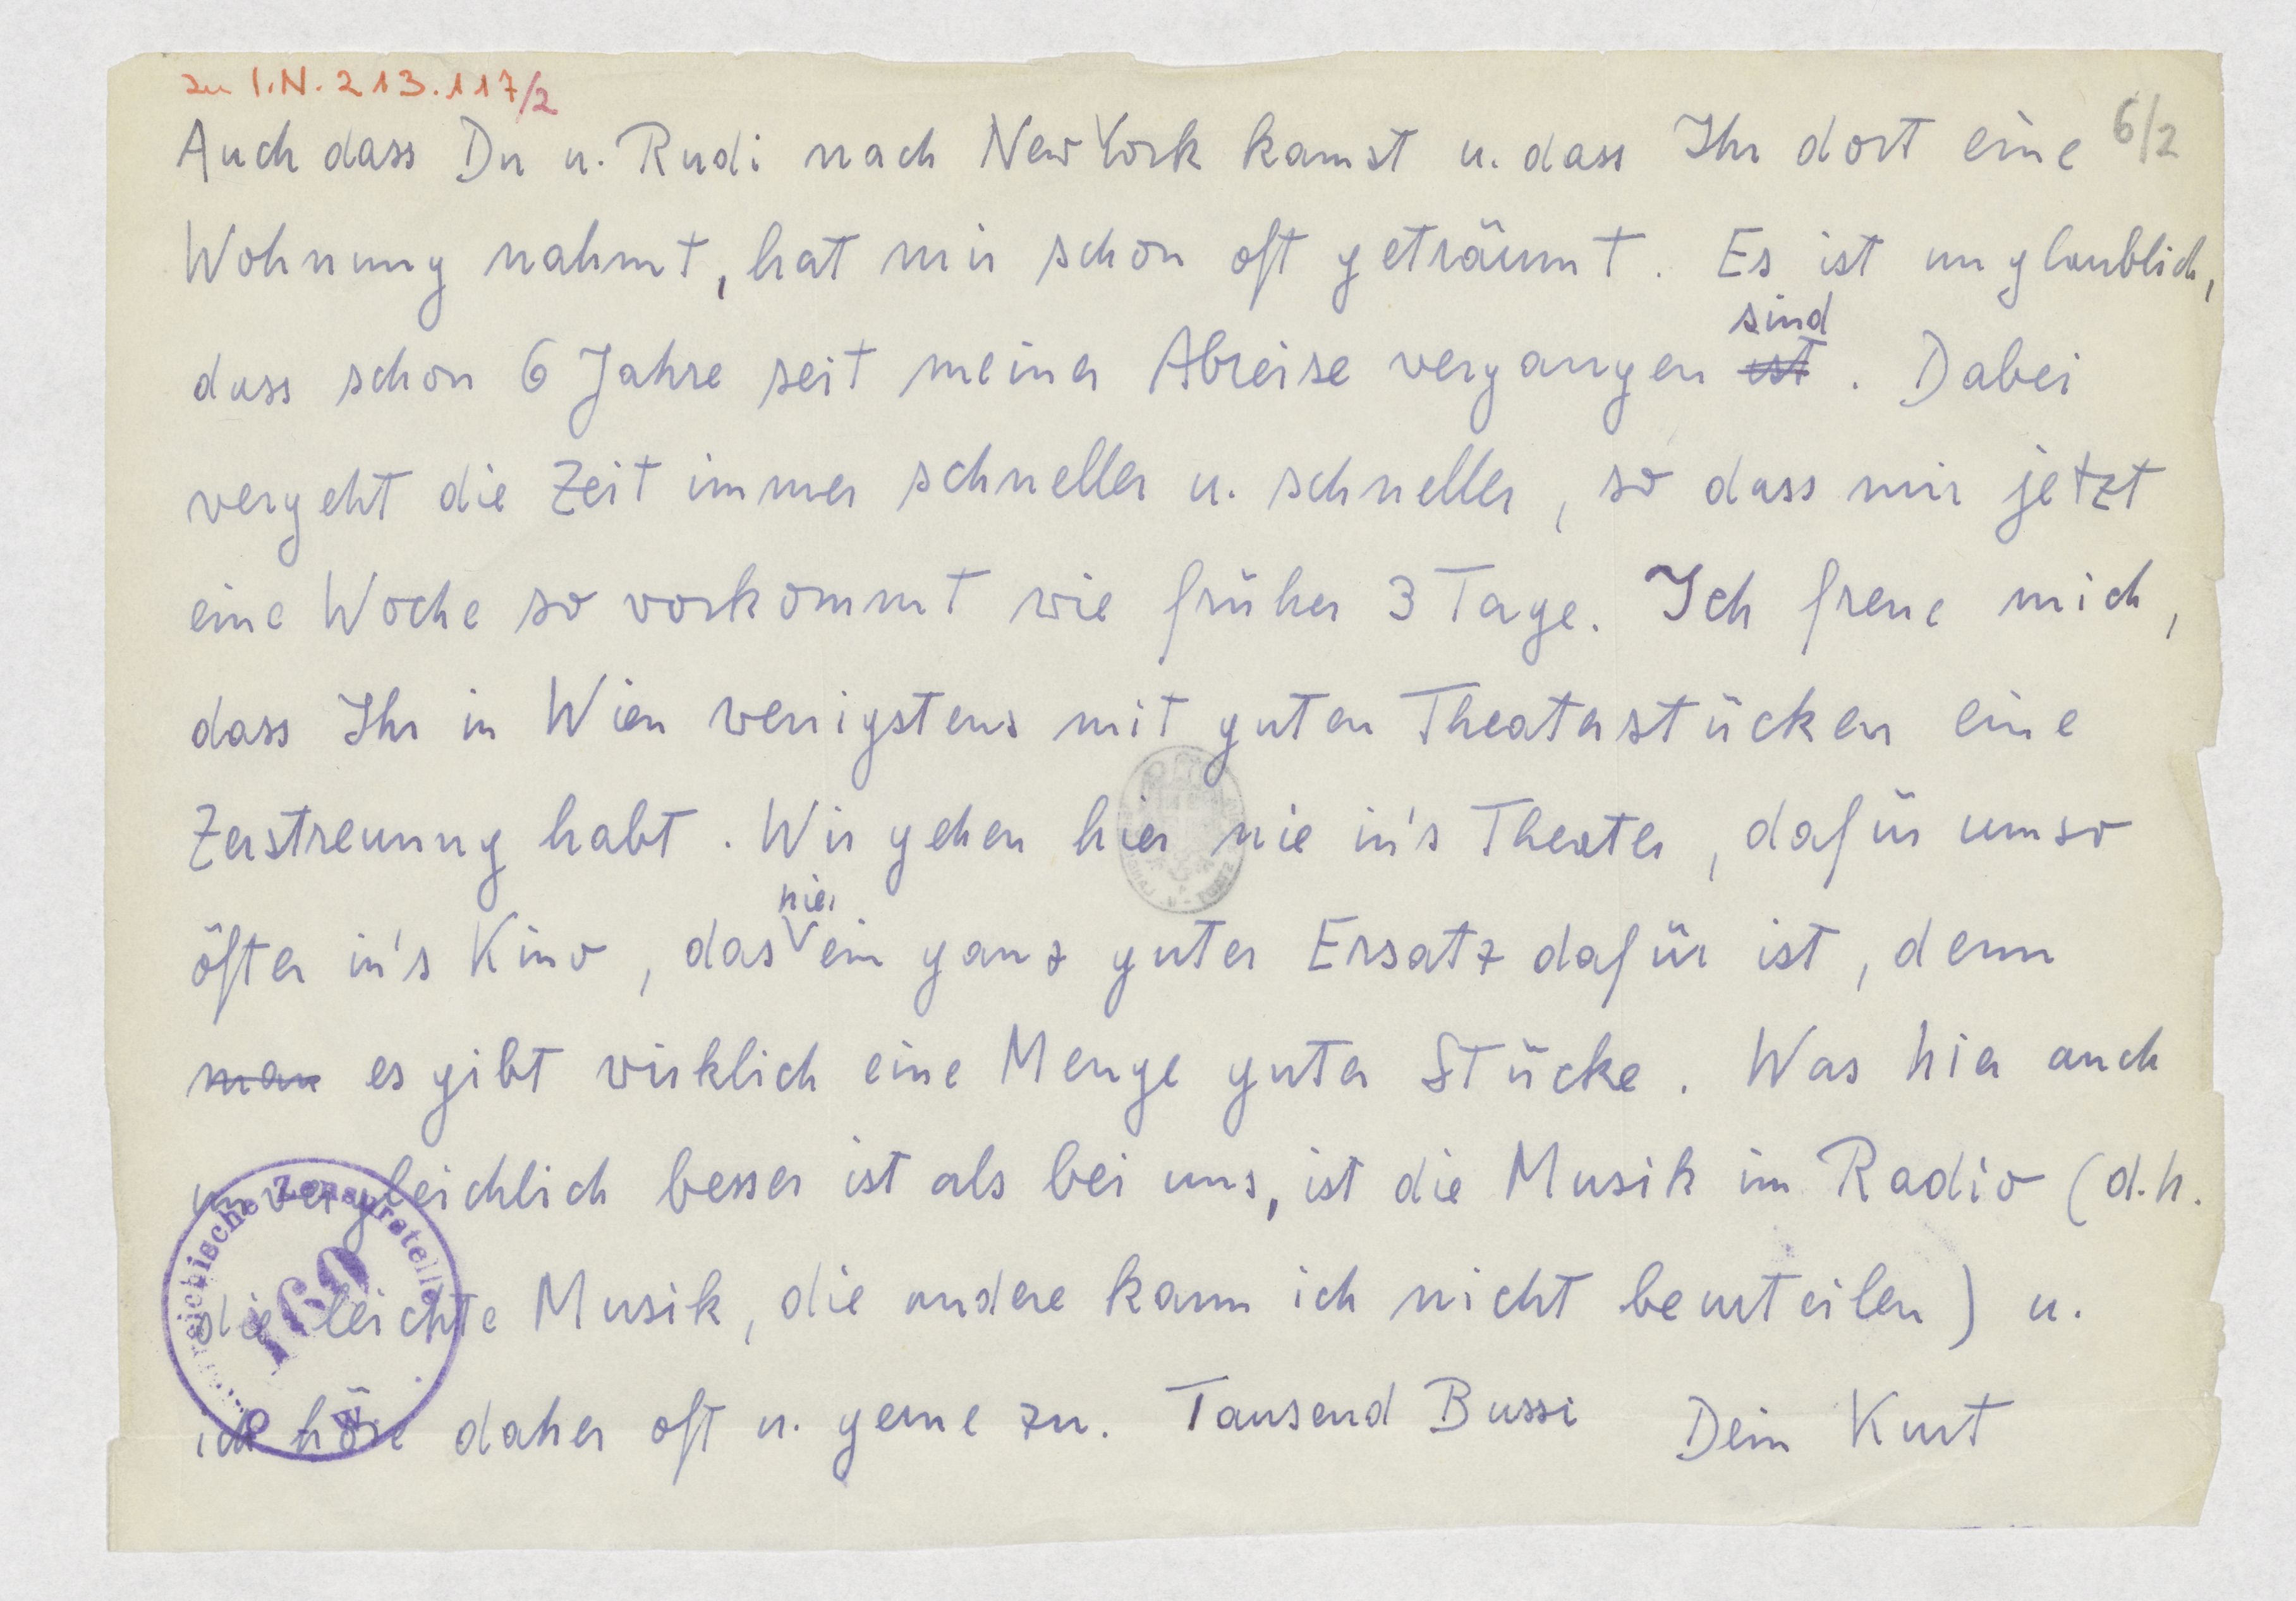 zu I.N. 213.117/2
6/2
Auch dass Du u. Rudi nach New York kamst u. dass Ihr dort eine
Wohnung nahmt, hat mir schon oft geträumt. Es ist unglaublich,
dass schon 6 Jahre seit meiner Abreise vergangen ~~ist~~ sind. Dabei
vergeht die Zeit immer schneller u. schneller, so dass mir jetzt
eine Woche so vorkommt wie früher 3 Tage. Ich freue mich,
dass Ihr in Wien wenigstens mit guten Theaterstücken eine
Zerstreuung habt. Wir gehen hier nie in's Theater, dafür umso
öfter in's Kino, das hier ein ganz guter Ersatz dafür ist, denn
~~man~~ es gibt wirklich eine Menge guter Stücke. Was hier auch
unvergleichlich besser ist als bei uns, ist die Musik im Radio (d.h.
die leichte Musik, die andere kann ich nicht beurteilen) u.
ich höre daher oft u. gerne zu. Tausend Bussi Dein Kurt
Zensurstelle
160